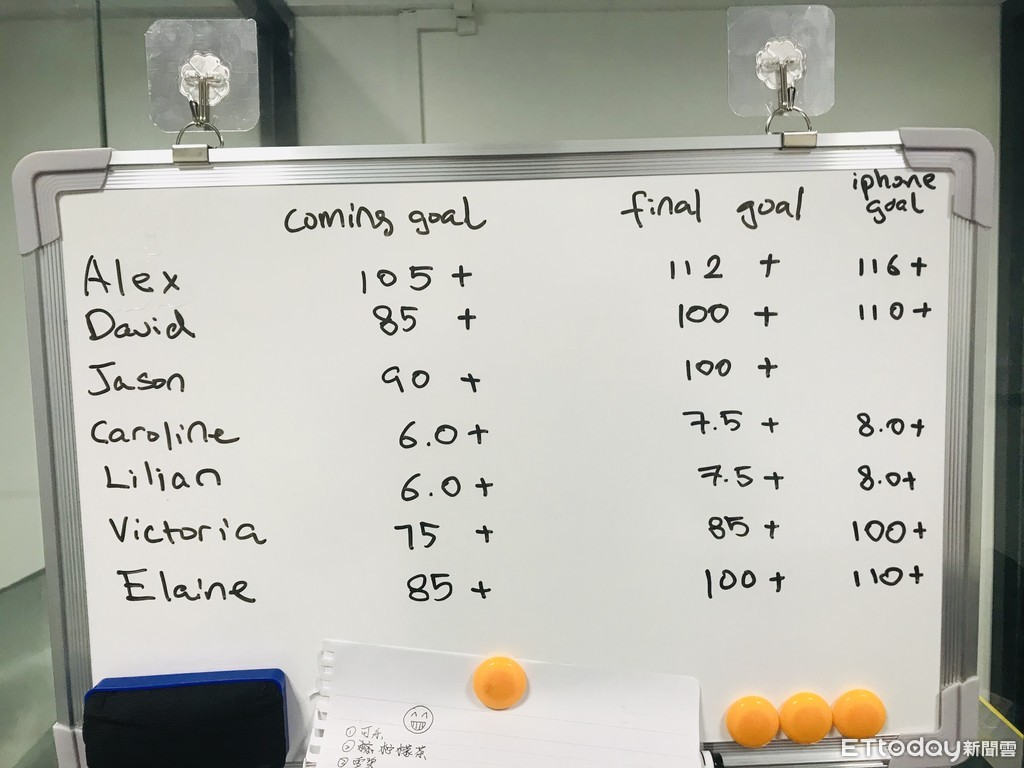 coming goal final goal iphone goal
Alex 105 + 112 + 116 +
David 85 + 100 + 110 +
Jason 90 + 100 +
Caroline 6.0 + 7.5 + 8.0+
Lilian 6.0 + 7.5 + 8.0+
Victoria 75 + 85 + 100+
Elaine 85 + 100 + 110+
① 可乐
② 檬茶
③
ETtoday新聞雲